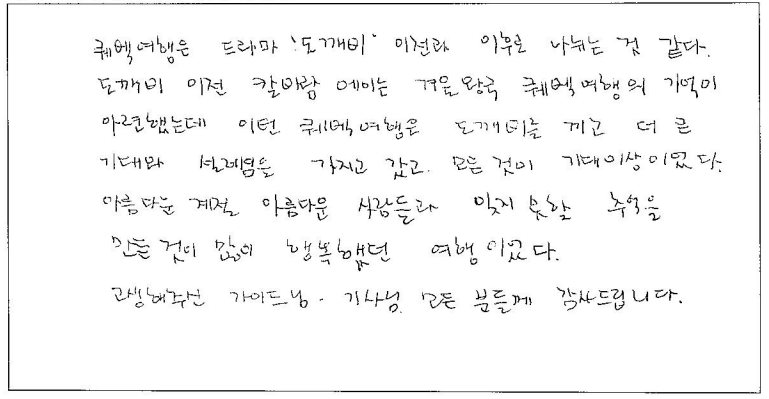 퀘벡여행은 드라마 '도깨비' 이전과 이후로 나뉘는 것 같다.
도깨비 이전 칼바람 에이는 겨울왕국 퀘벡여행의 기억이
아련했는데 이번 퀘벡여행은 도깨비를 끼고 더 큰
기대와 설레임을 가지고 갔고. 모든 것이 기대이상이었다.
아름다운 계절 아름다운 사람들과 잊지 못할 추억을
만든 것이 많이 행복했던 여행이었다.
고생해주신 가이드님. 기사님. 모든 분들께 감사드립니다.